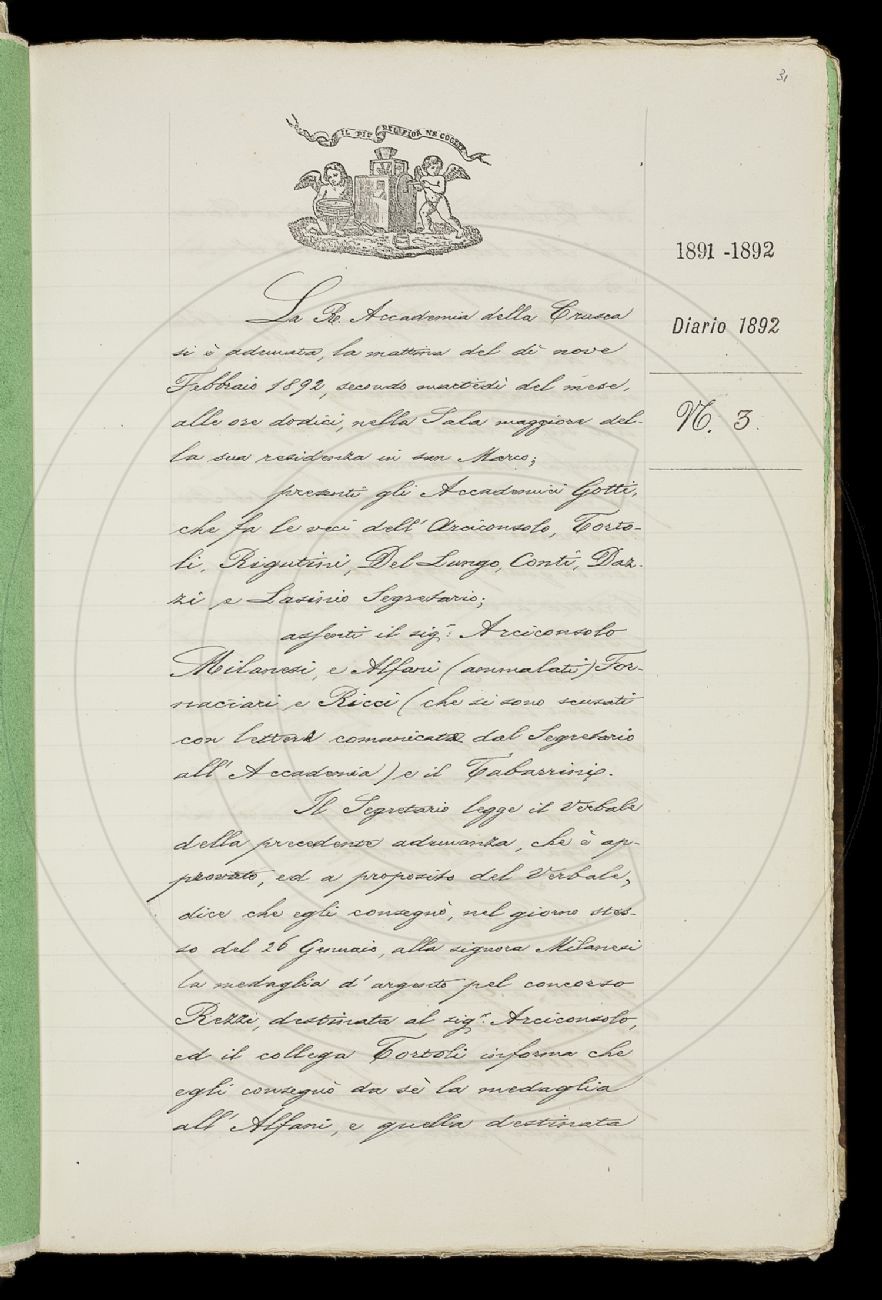 31
IL PIÙ BEL FIOR NE COGLIE
1891-1892
Diario 1892
N. 3.
La R. Accademia della Crusca
si è adunata, la mattina del dì nove
Febbraio 1892, secondo martedì del mese,
alle ore dodici, nella Sala maggiore del-
la sua residenza in san Marco;
presenti gli Accademici Gotti,
che fa le veci dell'Arciconsolo, Torto-
li, Rigutini, Del Lungo, Conti, Daz-
zi e Lasinio Segretario;
assenti il sig.r Arciconsolo
Milanesi, e Alfani (ammalati) For-
naciari e Ricci (che si sono scusati
con lettere comunicate dal Segretario
all'Accademia) e il Tabarrini.
Il Segretario legge il Verbale
della precedente adunanza, che è ap-
provato, ed a proposito del Verbale,
dice che egli consegnò, nel giorno stes-
so del 26 Gennaio, alla signora Milanesi
la medaglia d'argento pel concorso
Rezzi, destinata al sig.r Arciconsolo,
ed il collega Tortoli informa che
egli consegnò da sè la medaglia
all'Alfani, e quella destinata